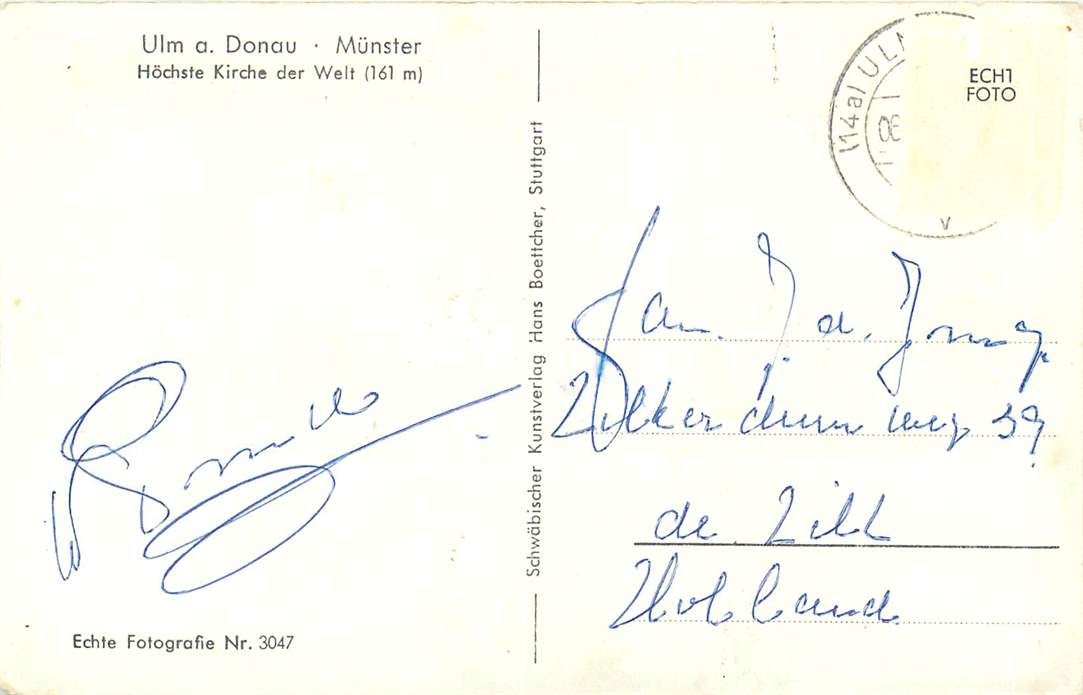 Ulm a. Donau · Münster
Höchste Kirche der Welt (161 m)
(14a) ULM
ECHT
FOTO
Schwäbischer Kunstverlag Hans Boettcher, Stuttgart
Fam. J. d. Jong
weg 39
de Bilt
Holland
Echte Fotografie Nr. 3047